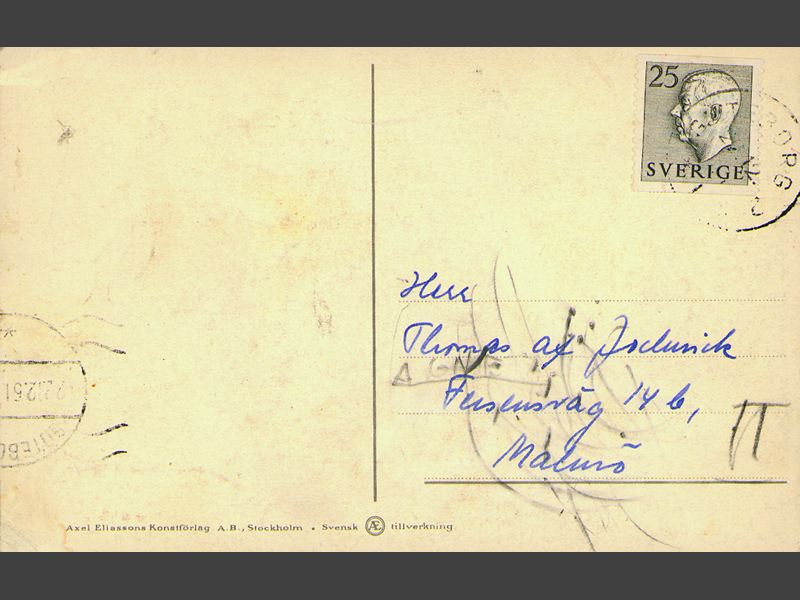 25
SVERIGE
BORG
Herr
Thomas af
Fersensväg 14 b,
Malmö
22.12.51
GÖTEBO
Axel Eliassons Konstförlag A.B., Stockholm • Svensk Æ tillverkning